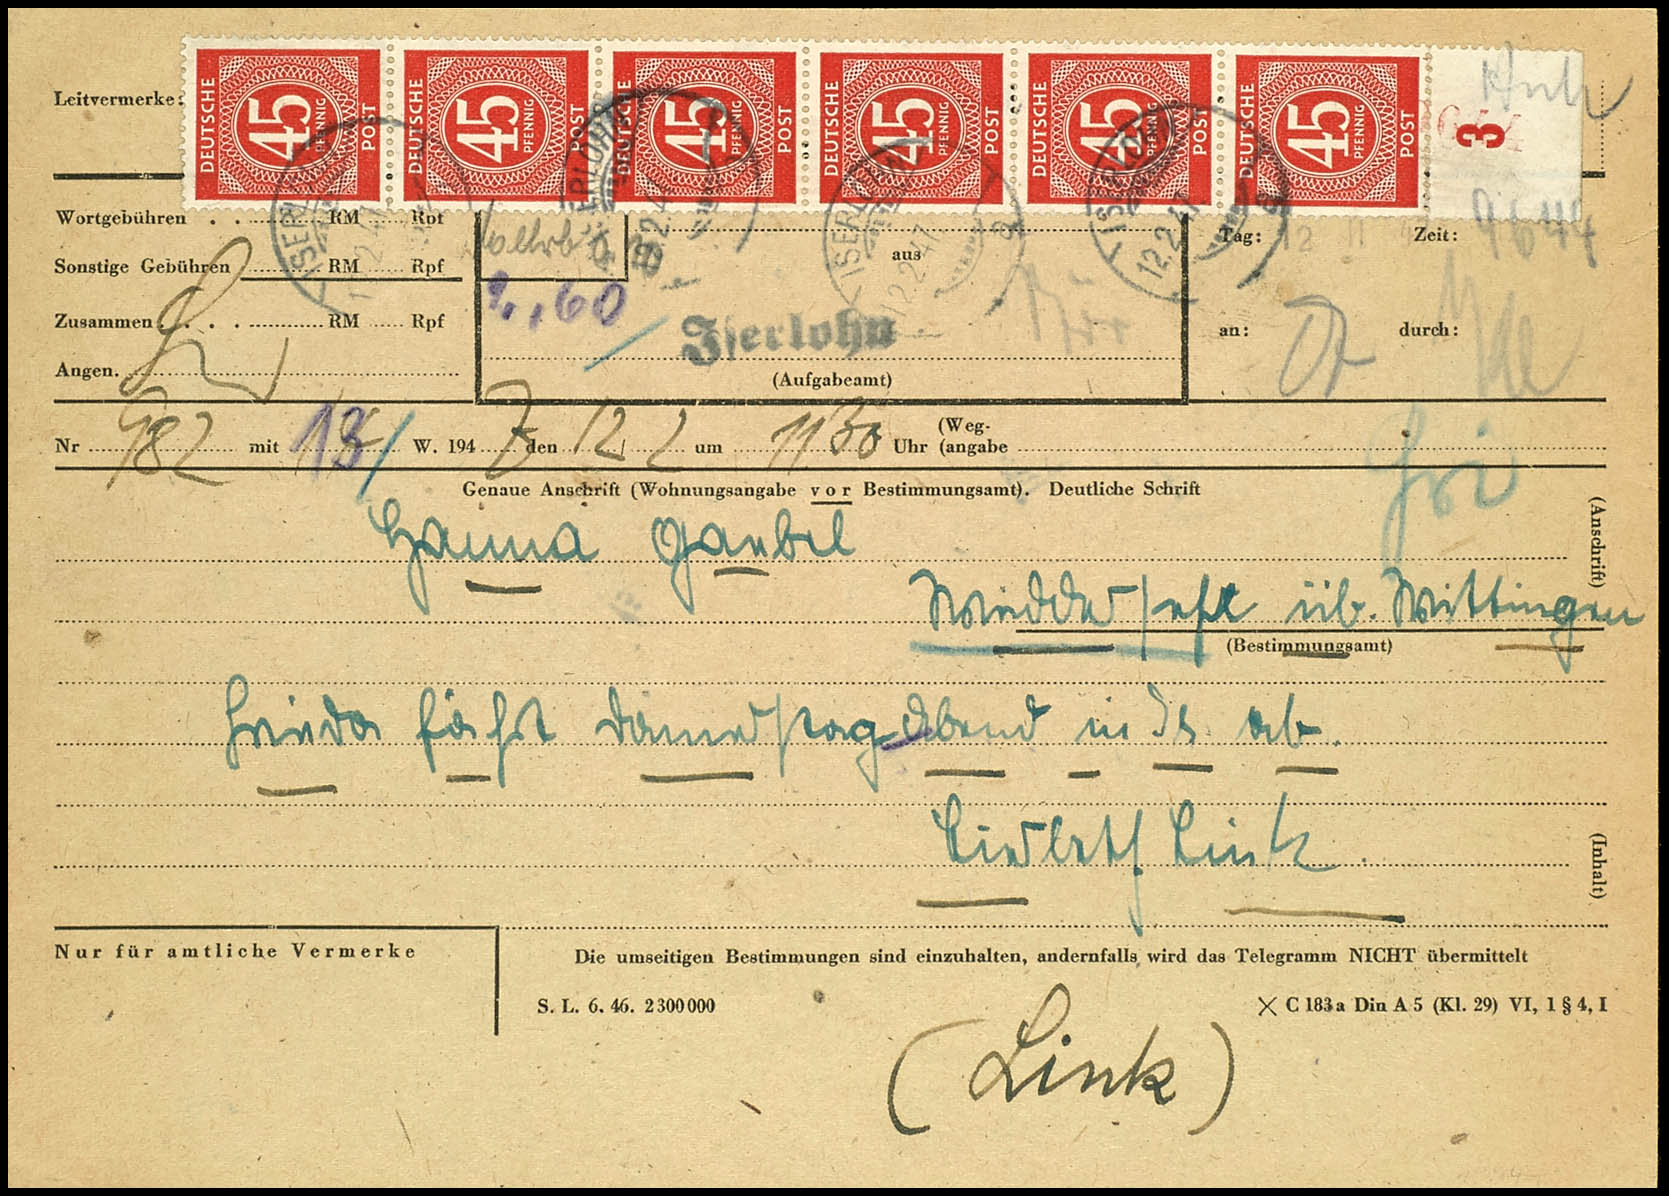 DEUTSCHE 45 PFENNIG POST DEUTSCHE 45 PFENNIG POST DEUTSCHE 45 PFENNIG POST DEUTSCHE 45 PFENNIG POST DEUTSCHE 45 PFENNIG POST DEUTSCHE 45 PFENNIG POST 3
Leitvermerke:
ISERLOHN 12.2.47
Wortgebühren . . RM Rpf
Sonstige Gebühren RM Rpf aus Tag: 12 Zeit:
Zusammen . . . . RM Rpf Iserlohn an: durch:
Angen. (Aufgabeamt)
Nr 982 mit 13 W. 194 7 den 12 2 um 1130 Uhr (Weg-(angabe
Genaue Anschrift (Wohnungsangabe vor Bestimmungsamt). Deutliche Schrift
(Anschrift)
Hanna Gaebel
üb. Wittingen
(Bestimmungsamt)
Frieda fährt Donnerstag abend in Is. ab.
Link.
(Inhalt)
Nur für amtliche Vermerke
Die umseitigen Bestimmungen sind einzuhalten, andernfalls wird das Telegramm NICHT übermittelt
S. L. 6. 46. 2300000
C 183a Din A 5 (Kl. 29) VI, 1 § 4, I
(Link)